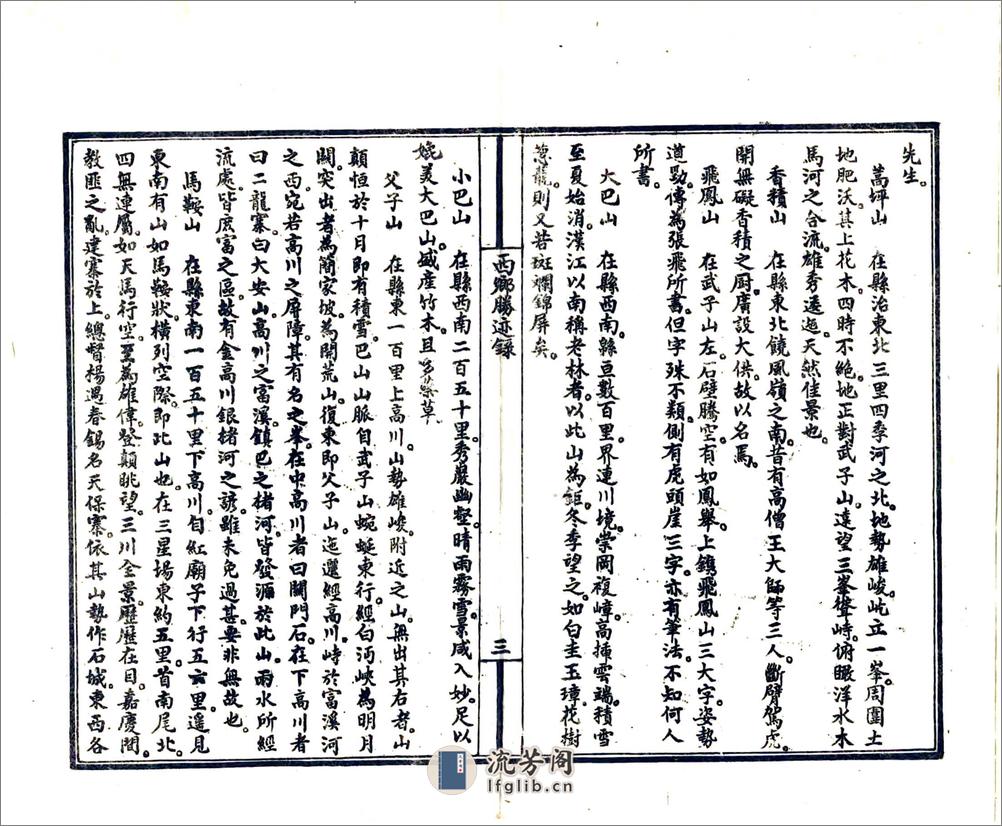 先生。
嵩坪山　在縣治東北三里四季河之北。地勢雄峻屹立一峯。周圍土
地肥沃。其上花木四時不絕。地正對武子山。遠望三峯聳峙。俯瞰洋水木
馬河之合流。雄秀逶迤。天然佳景也。
香積山　在縣東北饒風嶺之南。昔有高僧王大師等三人。斷臂駕虎。
開無礙香積之厨。廣設大供。故以名焉。
飛鳳山　在武子山左。石壁騰空。有如鳳舉。上鐫飛鳳山三大字。姿勢
道勁。傳為張飛所書。但字殊不類。側有虎頭崖三字。亦有筆法。不知何人
所書。
大巴山　在縣西南。縣亘數百里。界連川境。崇岡複嶂。高揷雲端。積雪
至夏始消。漢江以南稱老林者。以此山為鉅。冬季望之。如白圭玉璋。花樹
蔥蘢。則又若斑斕錦屏矣。
西鄉勝迹錄
三
小巴山　在縣西南二百五十里。秀巖幽壑。晴雨霧雪。景咸入妙。足以
媲美大巴山。盛産竹木。且多藥草。
父子山　在縣東一百里上高川。山勢雄峻。附近之山。無出其右者。山
顛恒於十月即有積雪。巴山山脈自武子山蜿蜒東行。經白沔峽為明月
關。突出者為簡家坡。為開荒山。復東即父子山。迤邐經高川。峙於富溪河
之西。宛若高川之屏障。其有名之峯。在中高川者曰關門石。在下高川者
曰二龍寨。曰大安山。高川之富溪。鎮巴之楮河。皆發源於此山。雨水所經
流處。皆庶富之區。故有金高川銀楮河之諺。雖未免過甚。要非無故也。
馬鞍山　在縣東南一百五十里下高川。自紅廟子下行五六里。遥見
東南有山如馬鞍狀。橫列空際。即此山也。在三星場東約五里。首南尾北。
四無連屬。如天馬行空。至為雄偉。登顛眺望。三川全景。歷歷在目。嘉慶間
教匪之亂。建寨於上。總督楊遇春錫名天保寨。依其山勢作石城。東西各
流芳阁
lfglib.cn